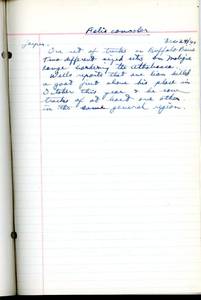 Felis concolor
Jasper. Nov 28/44
One set of tracks on Buffalo Prairie
Two different sized sets on Maligne
range bordering the Athabasca
Wells reports that one lion killed
a goat just above his place in
October this year & he saw
tracks of at least one other
in the same general region.